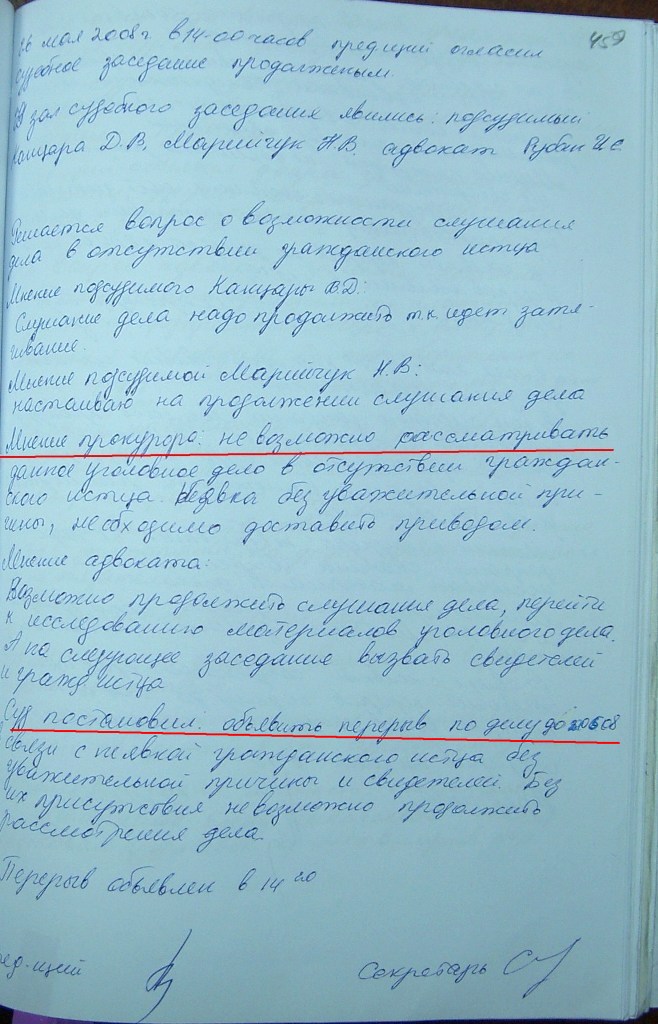 26 мая 2008 г в 14-00 часов пред-ций огласил
судебное заседание продолженым.
459
В зал судебного заседания явились: подсудимый
Канцара Д.В, Марийчук Н.В. адвокат Рубан И.С
Решается вопрос о возможности слушания
дела в отсутствии гражданского истца
Мнение подсудимого Канцары В.Д:
Слушание дела надо продолжить т.к идет затя-
гивание.
Мнение подсудимой Марийчук Н.В:
настаиваю на продолжении слушания дела
Мнение прокурора: не возможно рассматривать
данное уголовное дело в отсутствии граждан-
ского истца. Неявка без уважительной при-
чины, необходимо доставить приводом.
Мнение адвоката:
Возможно продолжить слушания дела, перейти
к исследованию материалов уголовного дела.
А на следующее заседание вызвать свидетелей
и гражд истца
Суд постановил: объявить перерыв по делу до
связи с неявкой гражданского истца без
уважительной причины и свидетелей. Без
их присутствия невозможно продолжить
рассмотрения дела.
Перерыв объявлен в 14 20
ред-ций
Секретарь